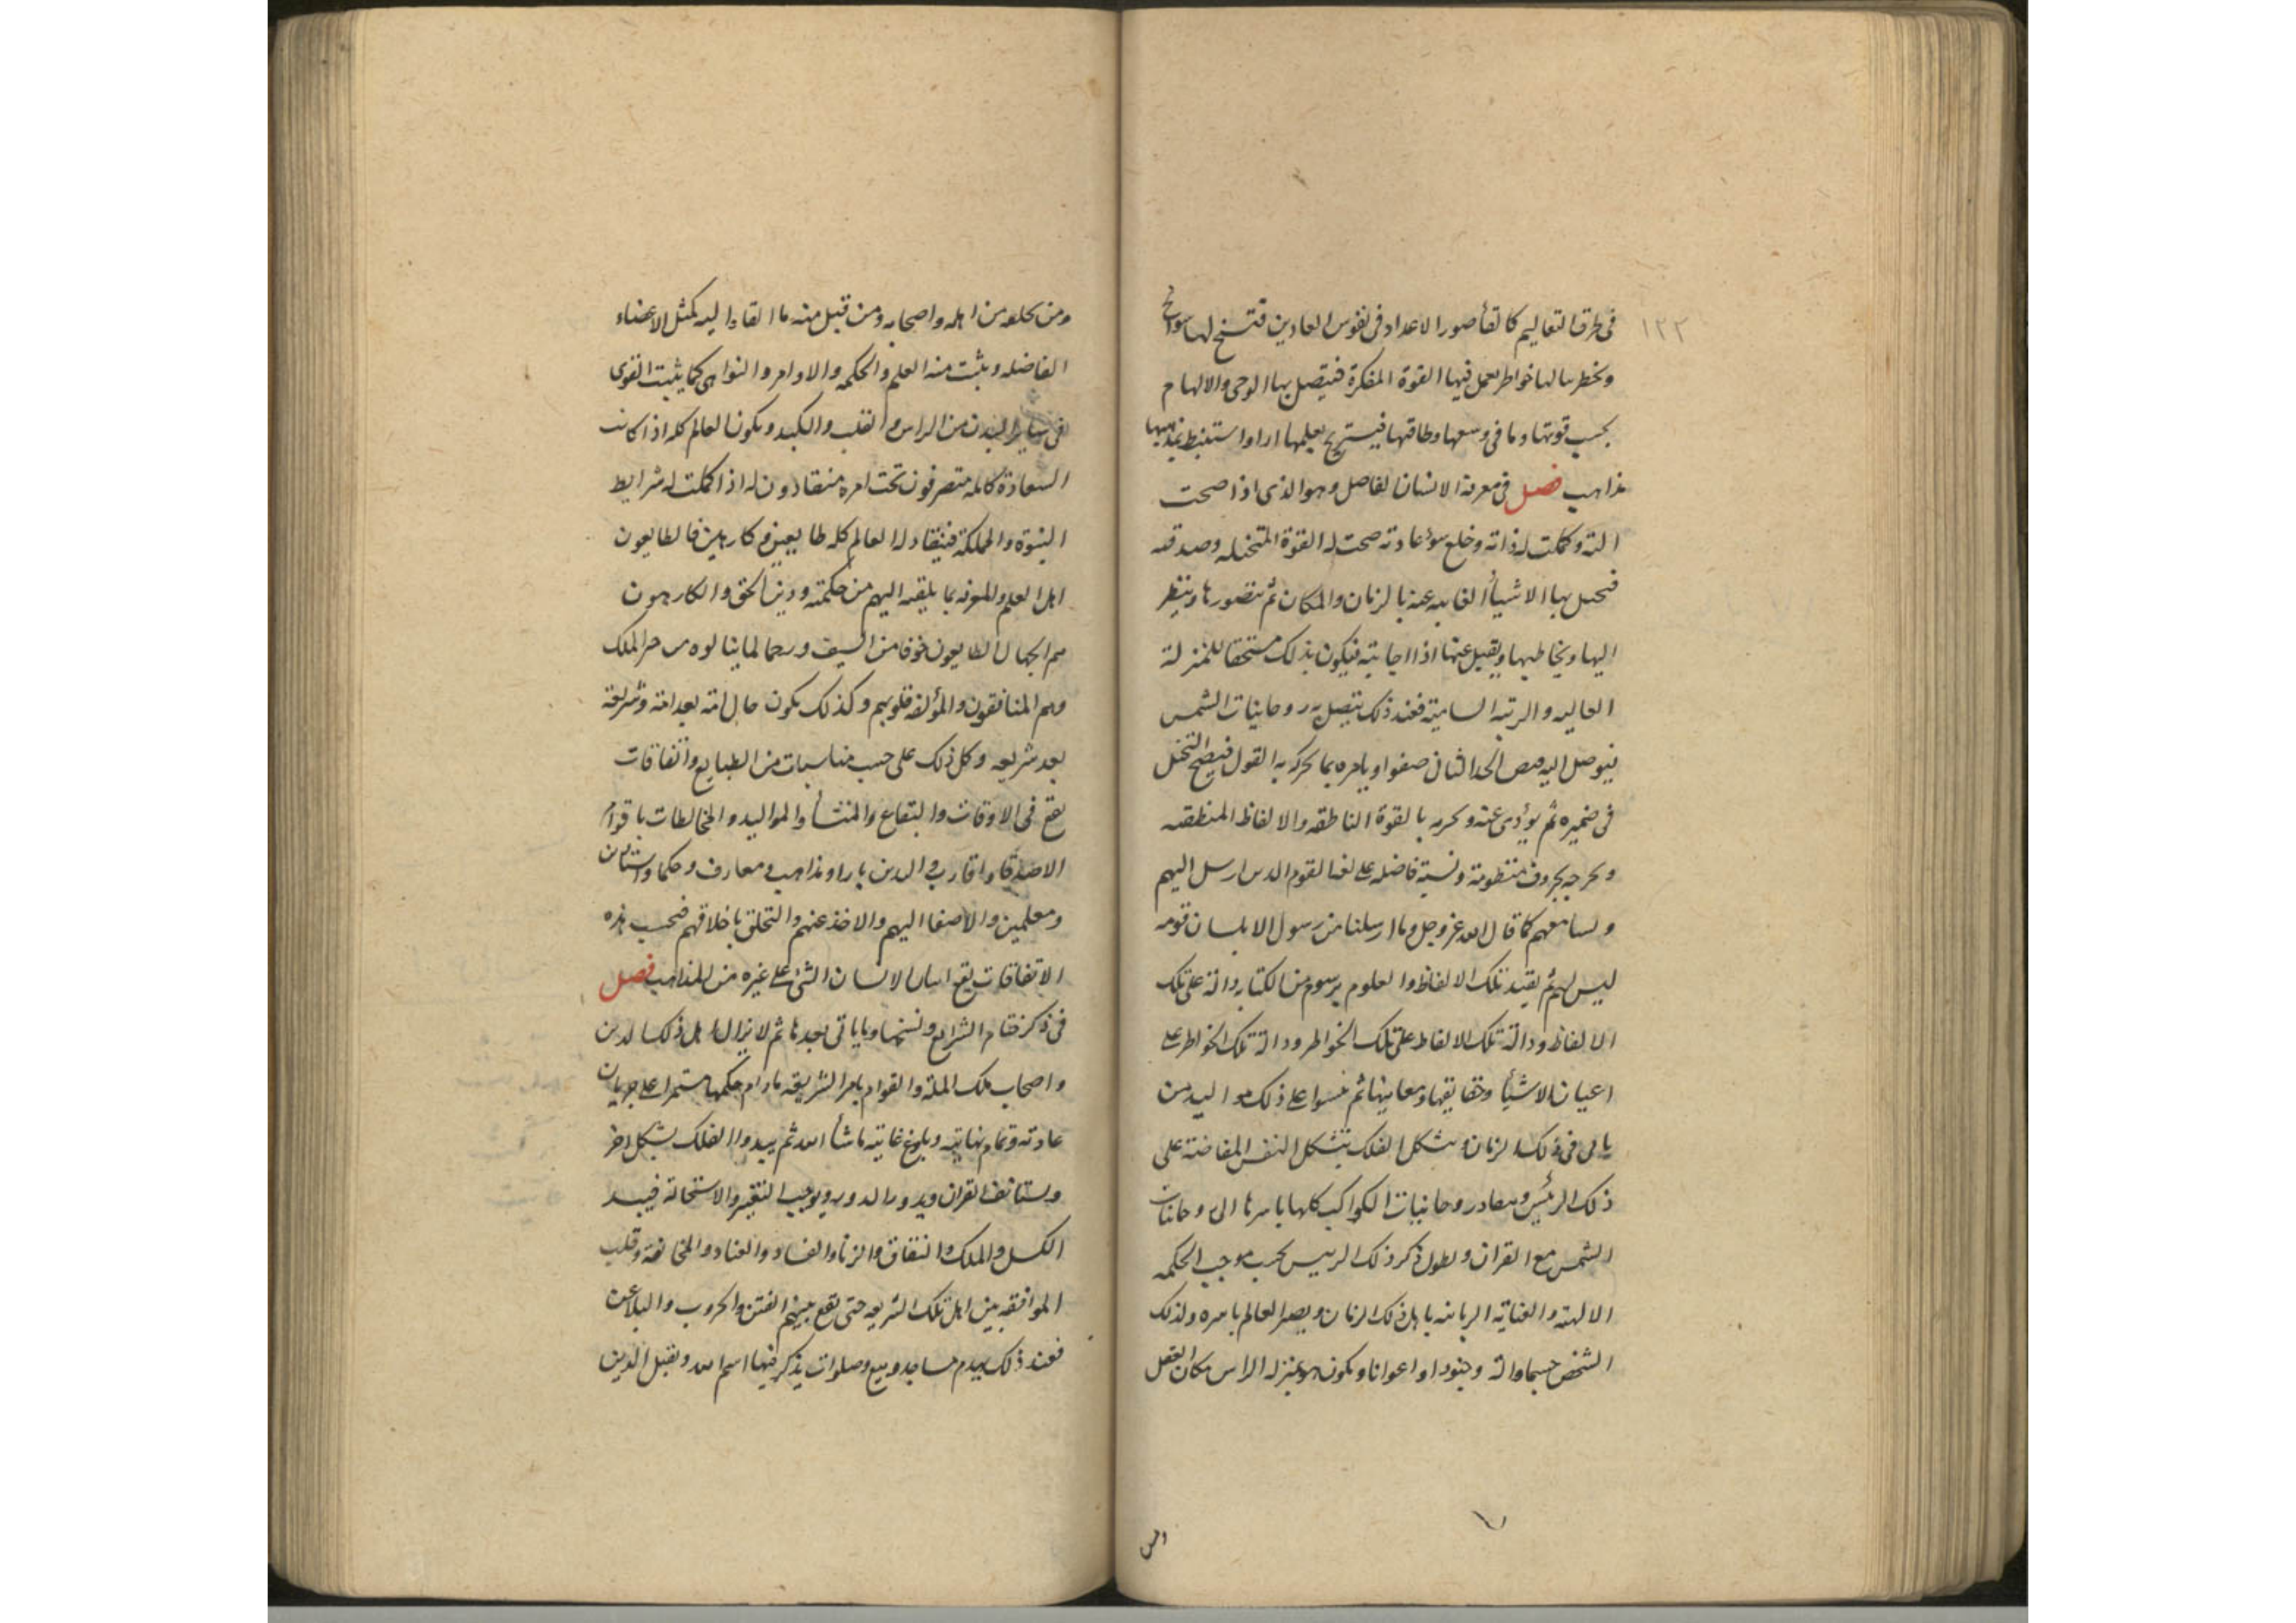 ١٢٢
في طرق التعاليم كالقأ صور الاعداد في نفوس العادين فتسنح لها سوانح
وتخطر ببالها خواطر يعمل فيها القوة المفكرة فيتصل بها الوحي والالهام
بحسب قوتها وما في وسعها وطاقتها فيستخرج بعلمها اراوا ستنبط بمذهبها
مذاهب فصل في معرفة الانسان الفاضل وهو الذي اذا صحت
الته وكملت له ذاته وخلع سوء عادته صحت له القوة المتخيله وصدقته
فتخيل بها الاشيأ الغايبه عنه بالزمان والمكان ثم تتصورها وينظر
اليها ويخاطبها ويقبل عنها اذا اجابته فيكون بذلك مستحقا للمنزلة
العاليه والرتبه الساميه فعند ذلك تتصل به روحانيات الشمس
فيوصل اليه الحد الثاني صفوا ويامره بما يحركه به القول فيصح التخيل
في ضميره ثم يؤدي عنه بالقوة الناطقه والالفاظ المنطقيه
ويخرجه بحروف منظومة ونسبة فاضله على لغة القوم الدين ارسل اليهم
ولسا معهم كما قال الله عز وجل وما ارسلنا من رسول الا بلسان قومه
ليبين لهم ثم يقيد تلك الالفاظ والعلوم برسوم من الكتابه دالة على تلك
الالفاظ ودالة تلك الالفاظ على تلك الخواطر ودالة تلك الخواطر على
اعيان الاشيأ وحقايقها ومعانيها ثم على ذلك
في ذلك الزمان وتشكل الفلك بتشكل النفس المفاضة على
ذلك الرئيس روحانيات الكواكب كلها باسرها الى روحانيات
الشمس مع القران ويطول ذكر ذلك الريس بحسب موجب الحكمه
الالهيه والعنايه الربانيه باهل ذلك الزمان ويصير العالم باسره ولذلك
الشخص جسما والة وجنودا واعوانا ويكون هو بمنزلة الراس مكان العقل
ومن يخلفه من اهله واصحابه ومن قبل منه ما القاه اليه كمثل الاعضاء
الفاضله ويثبت منه العلم والحكمه والاوامر والنواهي كما يثبت القوى
في ساير البدن من الراس والقلب والكبد ويكون العالم كله اذا كانت
السعادة كامله متصرفون تحت امره منقادون له اذا كملت له شرايط
النبوة والمملكة فينقاد له العالم كله طايعين وكارهين فالطايعون
اهل العلم والمعرفه بما يلقيه اليهم من حكمته ودين الحق والكارهون
هم الجهال الطايعون خوفا من السيف لما ينالوه من الملك
وهم المنافقون والمؤلفه قلوبهم وكذلك يكون حال امة بعد امة وشريعة
بعد شريعه وكل ذلك على حسب مناسبات من الطبايع واتفاقات
يقع في الاوقات والبقاع والمنشأ والمواليد والمخالطات باقوام
الاصدقا واقارب في الدين باراو مذاهب ومعارف وحكما
ومعلمين والاصغا اليهم والاخذ عنهم والتخلق باخلاقهم فبحسب هذه
الاتفاقات يقع الانسان الشئ على غيره من المذاهب فصل
في ذكر مقام الشرايع ونسخها وما ياتي بعدها ثم لا يزال اهل ذلك الدين
واصحاب تلك الملة والقوام بامر الشريعه مادام حكمها مستمرا على جريان
عادته وتمام نهايته وبلوغ غايته ماشأ الله ثم يبدوا الفلك بشكل اخر
ويستانف القران ويدور الدور ويوجب التغيير والاستحالة فيبد
الكسل والملك والنفاق والزنا والفساد والعناد والمخالفة وقلت
الموافقه بين اهل تلك الشريعه حتى يقع بينهم الفتن والحروب والبلا عن
فعند ذلك يهدم مساجد وبيع وصلوات يذكر فيها اسم الله ويقتل الذين